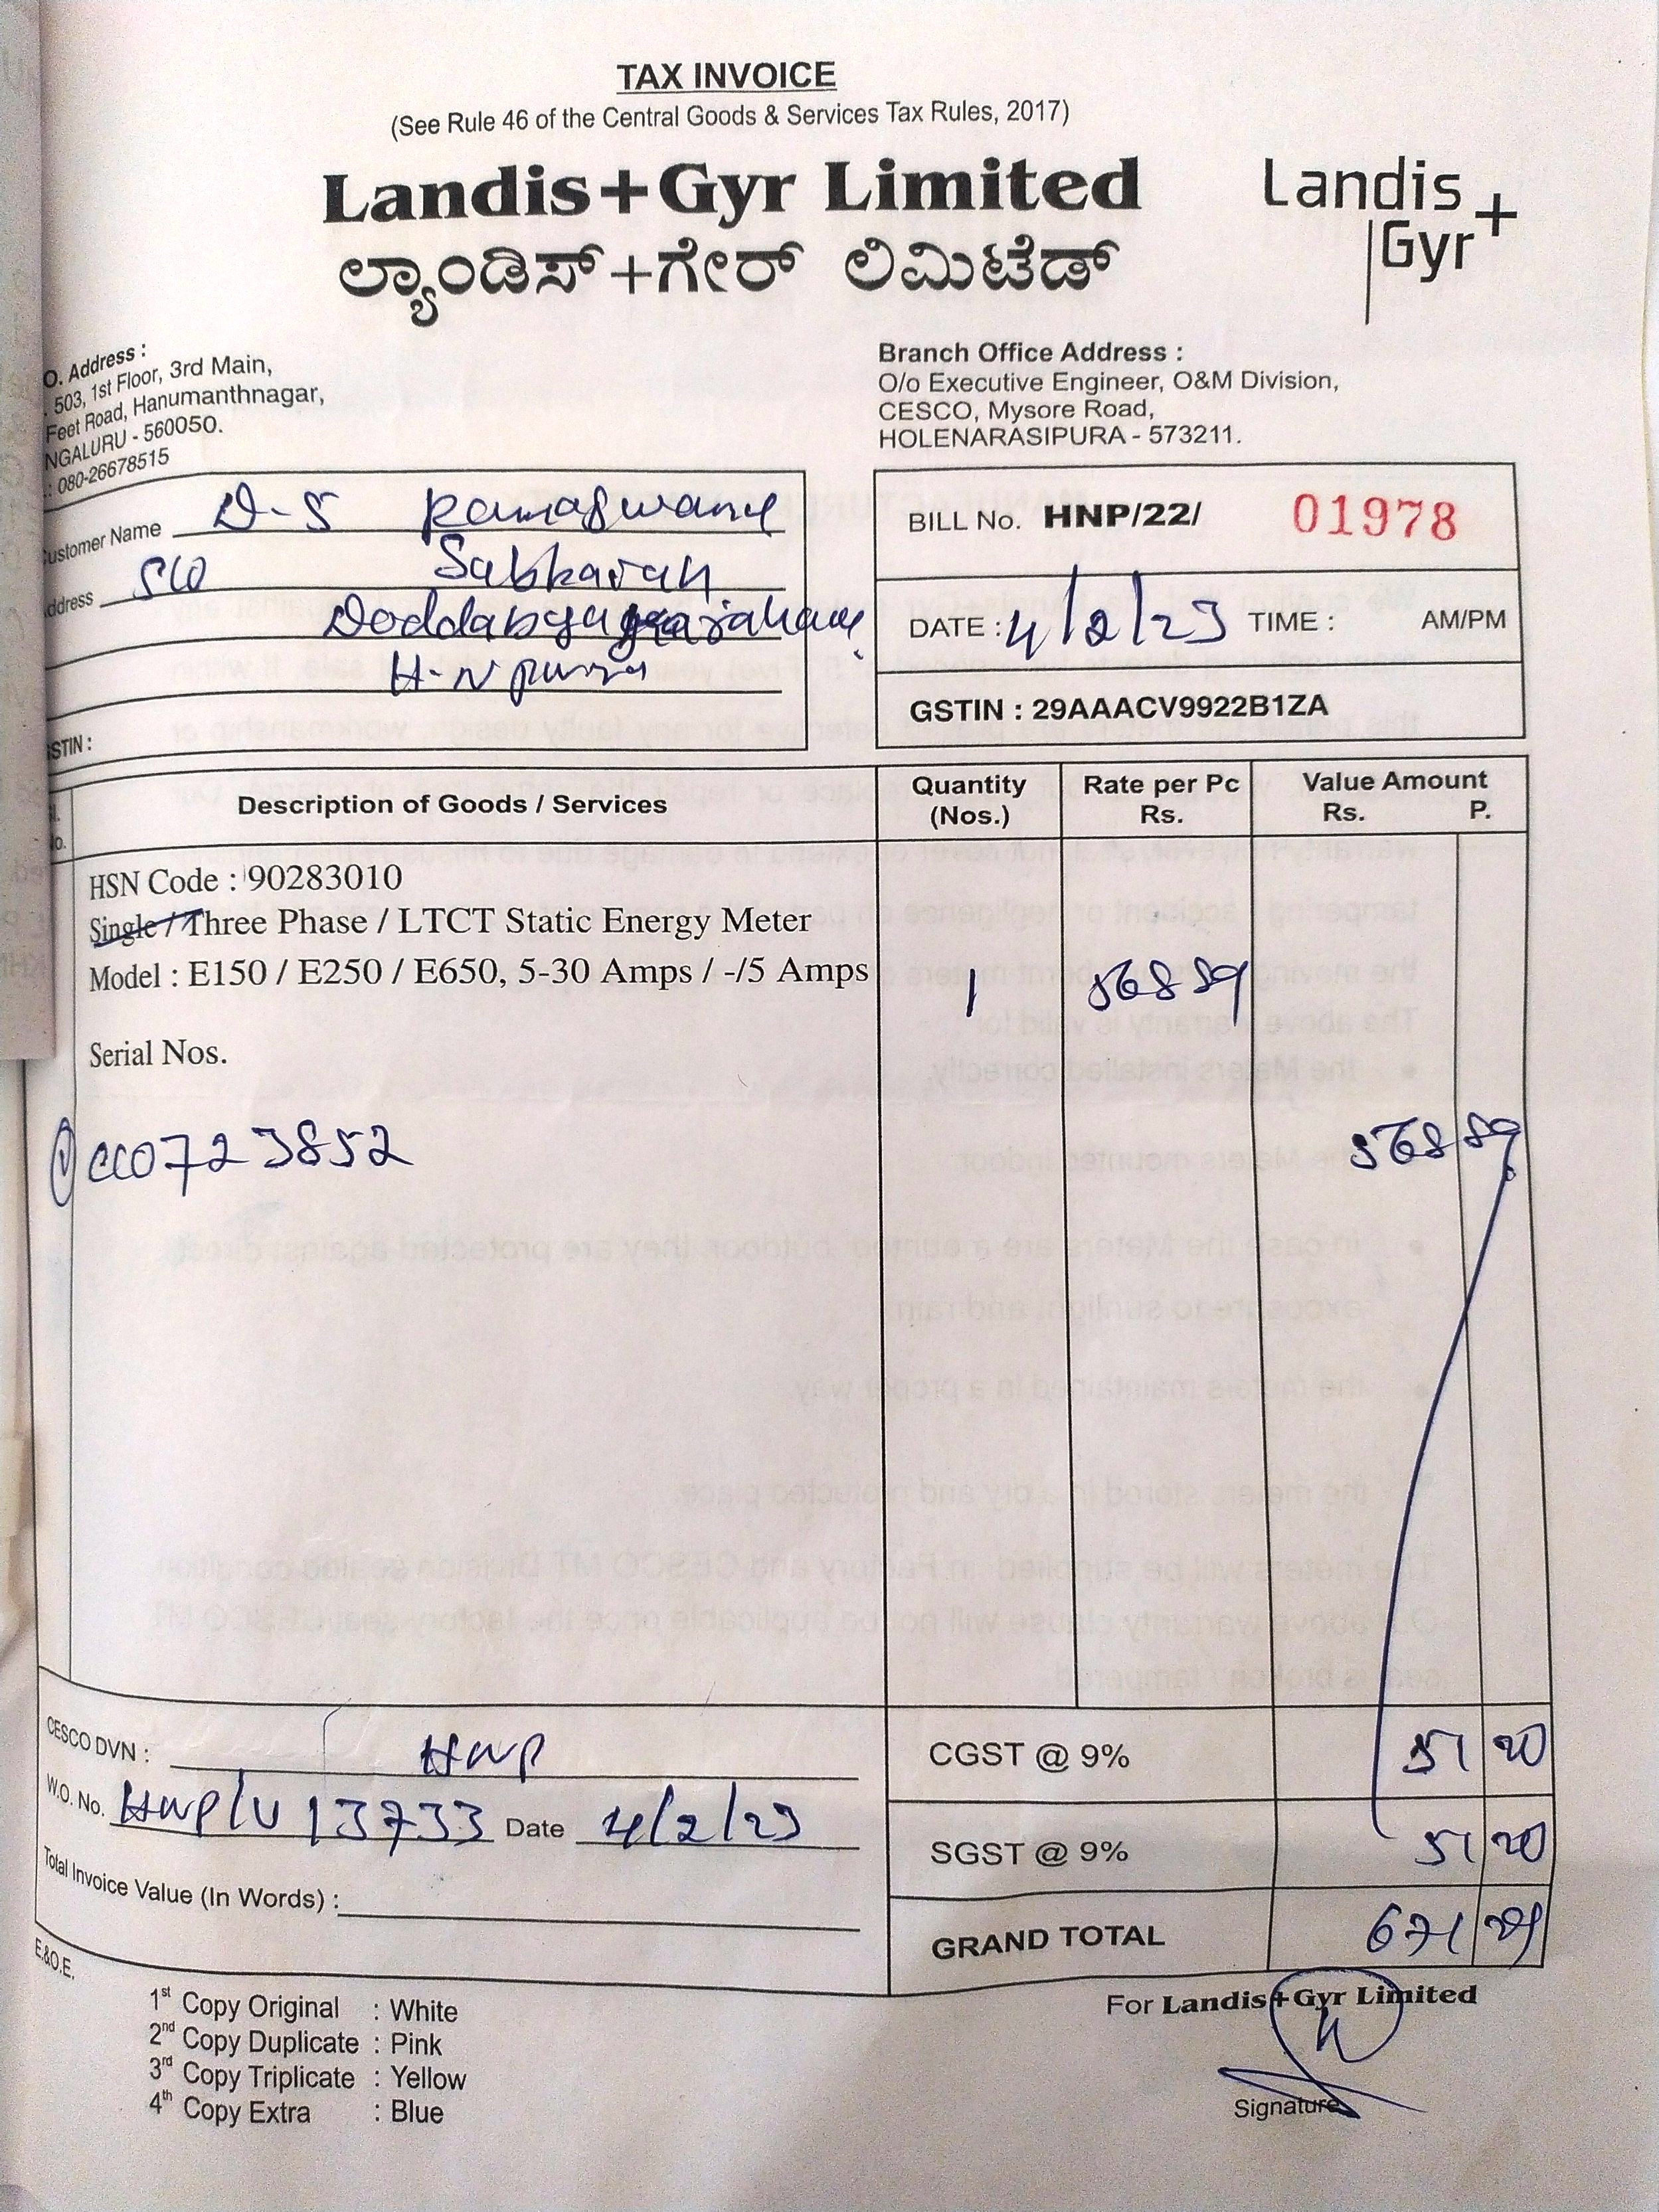 TAX INVOICE
(See Rule 46 of the Central Goods & Services Tax Rules, 2017)
Landis+Gyr Limited
ಲ್ಯಾಂಡಿಸ್+ಗೇರ್ ಲಿಮಿಟೆಡ್
Landis
Gyr+
O. Address :
503, 1st Floor, 3rd Main,
Feet Road, Hanumanthnagar,
NGALURU - 560050.
: 080-26678515
Branch Office Address :
O/o Executive Engineer, O&M Division,
CESCO, Mysore Road,
HOLENARASIPURA - 573211.
ustomer Name D-S Ramaswamy
ddress S/O
H-N pura
STIN :
BILL No. HNP/22/ 01978
DATE : 4/2/23 TIME : AM/PM
GSTIN : 29AAACV9922B1ZA
Description of Goods / Services
Quantity (Nos.)
Rate per Pc Rs.
Value Amount Rs. P.
HSN Code : 90283010
Single / Three Phase / LTCT Static Energy Meter
Model : E150 / E250 / E650, 5-30 Amps / -/5 Amps
1 568 89
Serial Nos.
① CC0723852 568 89
CESCO DVN : HNP
CGST @ 9% 51 20
W.O. No. 13733 Date 4/2/23
SGST @ 9% 51 20
Total Invoice Value (In Words) :
GRAND TOTAL 671 29
E.&O.E.
1st Copy Original : White
2nd Copy Duplicate : Pink
3rd Copy Triplicate : Yellow
4th Copy Extra : Blue
For Landis+Gyr Limited
Signature